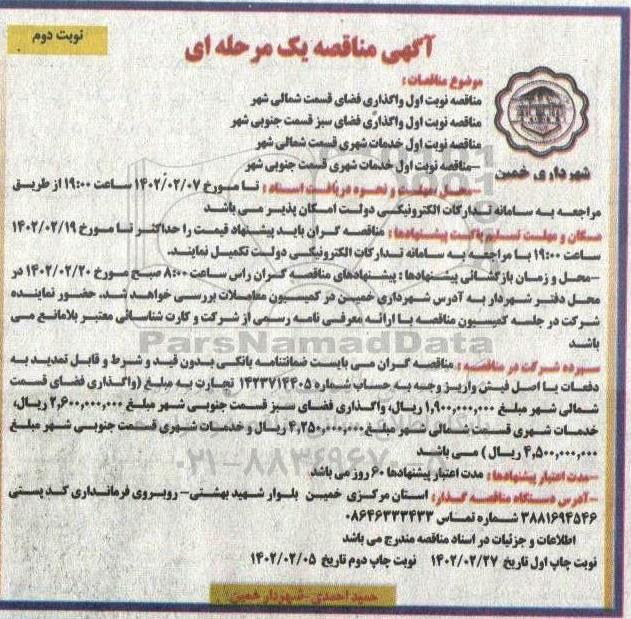 نوبت دوم
آگهی مناقصه یک مرحله ای
شهرداری خمین
موضوع مناقصات :
مناقصه نوبت اول واگذاری فضای قسمت شمالی شهر
مناقصه نوبت اول واگذاری فضای سبز قسمت جنوبی شهر
مناقصه نوبت اول خدمات شهری قسمت شمالی شهر
–مناقصه نوبت اول خدمات شهری قسمت جنوبی شهر
–محل ،مهلت و نحوه دریافت اسناد : تا مورخ ۱۴۰۲/۰۲/۰۷ ساعت ۱۹:۰۰ از طریق
مراجعه به سامانه تدارکات الکترونیکی دولت امکان پذیر می باشد
مکان و مهلت تسلیم پاکت پیشنهادها : مناقصه گران باید پیشنهاد قیمت را حداکثر تا مورخ ۱۴۰۲/۰۲/۱۹
ساعت ۱۹:۰۰ با مراجعه به سامانه تدارکات الکترونیکی دولت تکمیل نمایند.
–محل و زمان بازگشائی پیشنهادها : پیشنهادهای مناقصه گران راس ساعت ۸:۰۰ صبح مورخ ۱۴۰۲/۰۲/۲۰ در
محل دفتر شهردار به آدرس شهرداری خمین در کمیسیون معاملات بررسی خواهد شد. حضور نماینده
شرکت در جلسه کمیسیون مناقصه با ارائه معرفی نامه رسمی از شرکت و کارت شناسائی معتبر بلامانع می
باشد
ParsNamadData
سپرده شرکت در مناقصه : مناقصه گران می بایست ضمانتنامه بانکی بدون قید و شرط و قابل تمدید به
دفعات یا اصل فیش واریز وجه به حساب شماره ۱۴۲۳۷۱۴۴۰۵ تجارت به مبلغ (واگذاری فضای قسمت
شمالی شهر مبلغ ۱,۹۰۰,۰۰۰,۰۰۰ ریال، واگذاری فضای سبز قسمت جنوبی شهر مبلغ ۲,۶۰۰,۰۰۰,۰۰۰ ریال،
خدمات شهری قسمت شمالی شهر مبلغ ۴,۲۵۰,۰۰۰,۰۰۰ ریال و خدمات شهری قسمت جنوبی شهر مبلغ
۴,۵۰۰,۰۰۰,۰۰۰ ریال ) می باشد
۰۲۱-۸۸۳۴۹۶۷۰
–مدت اعتبار پیشنهادها : مدت اعتبار پیشنهادها ۶۰ روز می باشد
–آدرس دستگاه مناقصه گذار: استان مرکزی خمین بلوار شهید بهشتی– روبروی فرمانداری کد پستی
۳۸۸۱۶۹۴۵۴۶ شماره تماس ۰۸۶۴۶۳۳۳۴۳۳
اطلاعات و جزئیات در اسناد مناقصه مندرج می باشد
نوبت چاپ اول تاریخ ۱۴۰۲/۰۲/۲۷ نوبت چاپ دوم تاریخ ۱۴۰۲/۰۲/۰۵
حمید احمدی–شهردار خمین